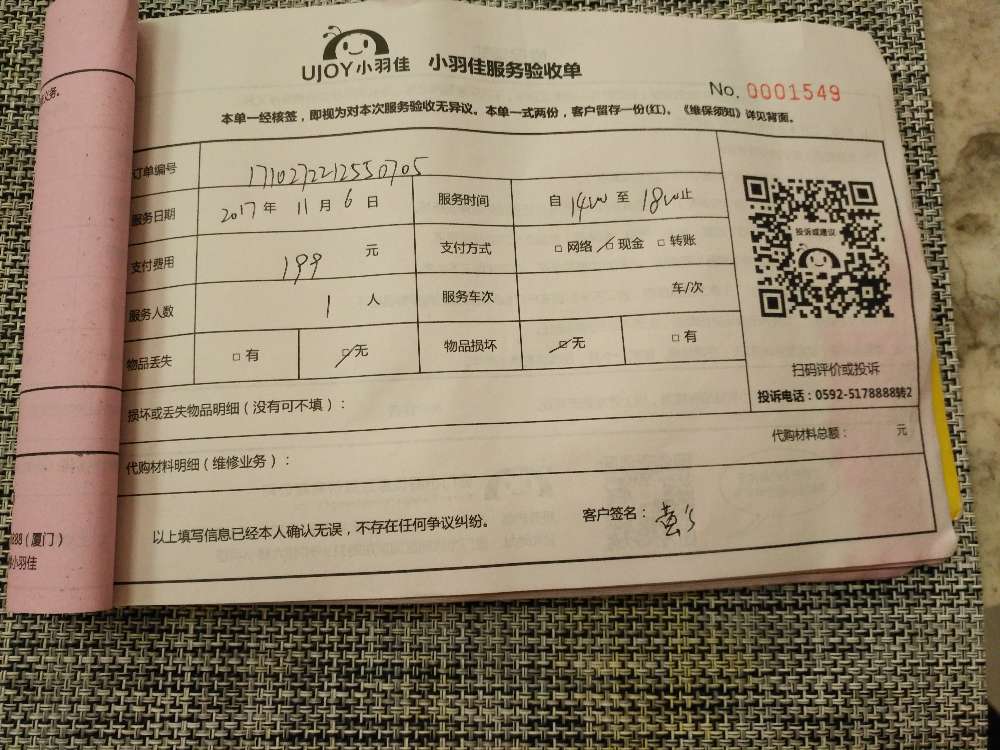 UJOY小羽佳 小羽佳服务验收单
No. 0001549
本单一经核签，即视为对本次服务验收无异议。本单一式两份，客户留存一份(红)。《维保须知》详见背面。
订单编号 1710272212550705
服务日期 2017年11月6日 服务时间 自1400至1800止
支付费用 199元 支付方式 □网络 □现金 □转账
服务人数 1人 服务车次 车/次
物品丢失 □有 □无 物品损坏 □无 □有
投诉或建议
扫码评价或投诉
投诉电话：0592-5178888转2
损坏或丢失物品明细（没有可不填）：
代购材料总额： 元
代购材料明细（维修业务）：
以上填写信息已经本人确认无误，不存在任何争议纠纷。 客户签名：黄
义务。
（厦门）
小羽佳